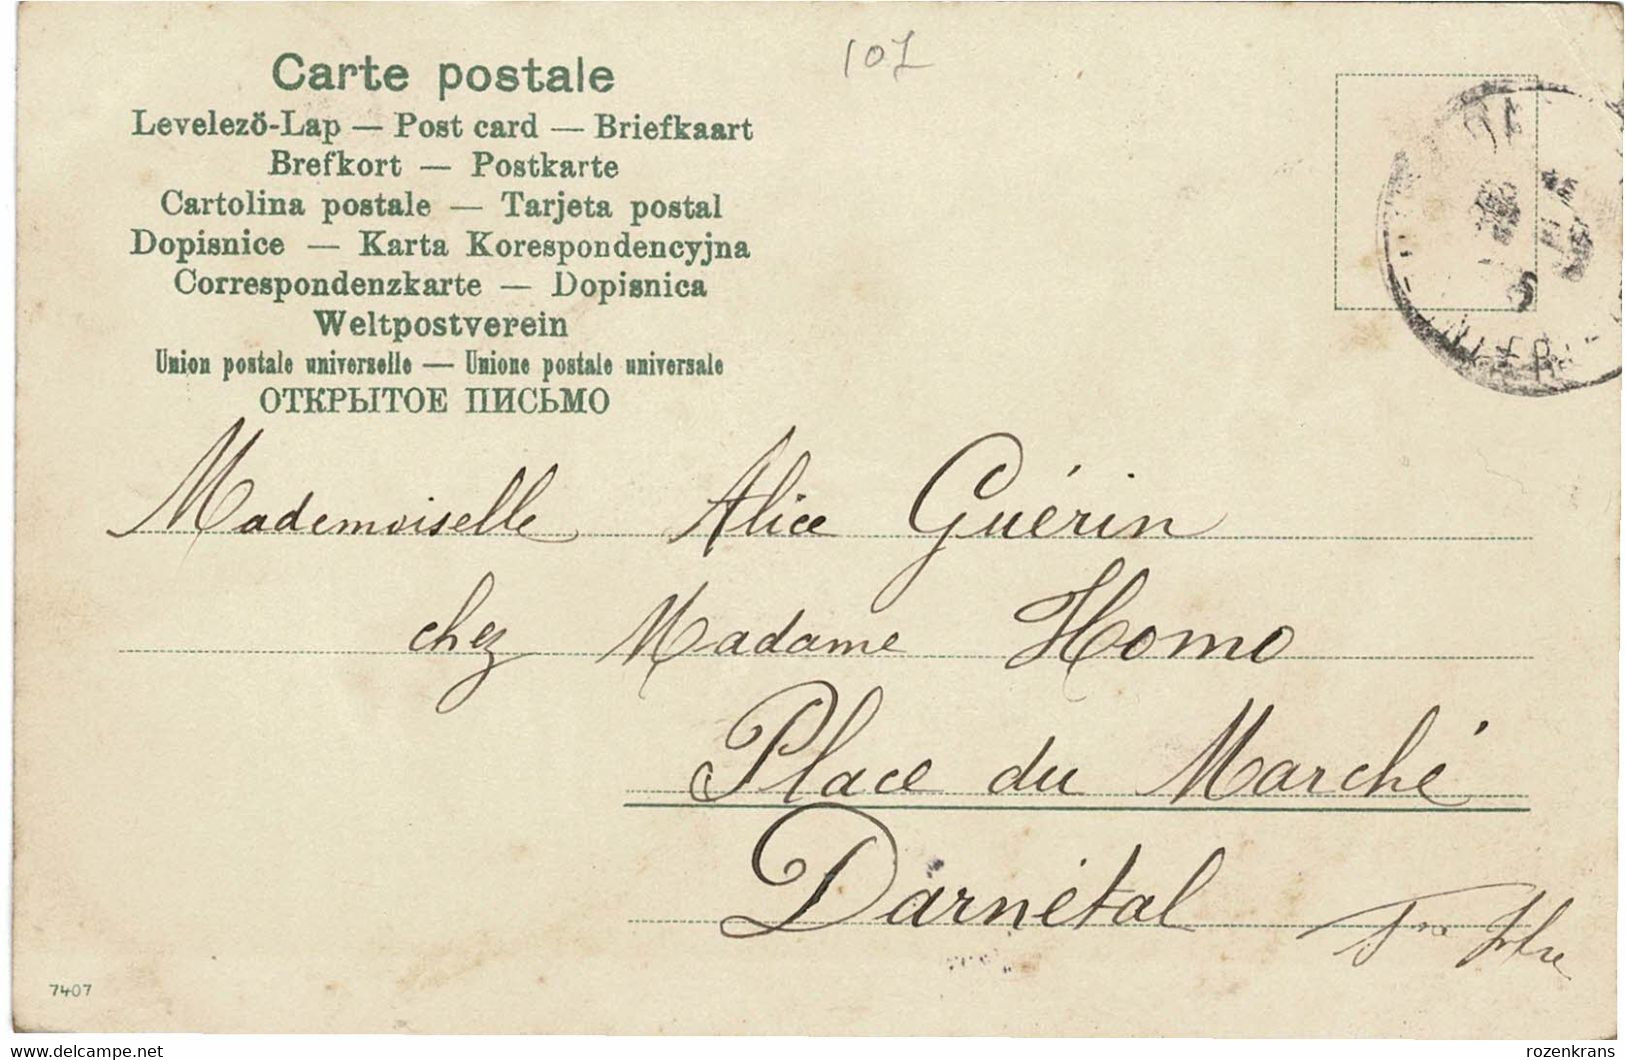 107
Carte postale
Levelező-Lap — Post card — Briefkaart
Brefkort — Postkarte
Cartolina postale — Tarjeta postal
Dopisnice — Karta Korespondencyjna
Correspondenzkarte — Dopisnica
Weltpostverein
Union postale universelle — Unione postale universale
ОТКРЫТОЕ ПИСЬМО
Mademoiselle Alice Guérin
chez Madame Homo
Place du Marché
Darnétal
Sne Infre
7407
delcampe.net
rozenkrans